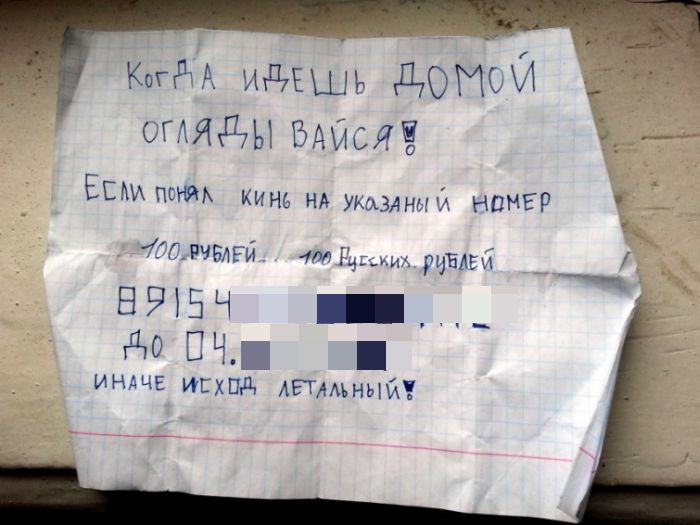 КОГДА ИДЕШЬ ДОМОЙ
ОГЛЯДЫВАЙСЯ!
ЕСЛИ ПОНЯЛ КИНЬ НА УКАЗАНЫЙ НОМЕР
100 РУБЛЕЙ... 100 РУССКИХ РУБЛЕЙ
89154
ДО 04.
ИНАЧЕ ИСХОД ЛЕТАЛЬНЫЙ!